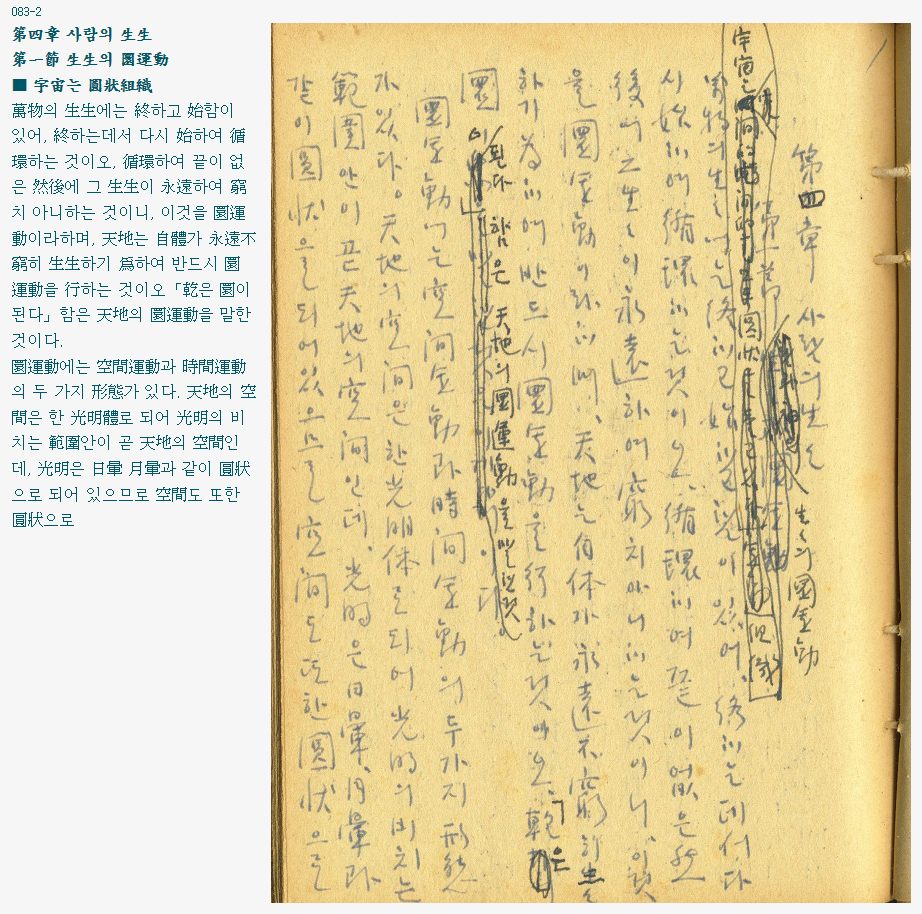 083-2
第四章 사람의 生生
第一節 生生의 圜運動
■ 宇宙는 圓狀組織
萬物의 生生에는 終하고 始함이
있어, 終하는데서 다시 始하여 循
環하는 것이오, 循環하여 끝이 없
은 然後에 그 生生이 永遠하여 窮
치 아니하는 것이니, 이것을 圜運
動이라하며, 天地는 自體가 永遠不
窮히 生生하기 爲하여 반드시 圜
運動을 行하는 것이오「乾은 圜이
된다」함은 天地의 圜運動을 말한
것이다.
圜運動에는 空間運動과 時間運動
의 두 가지 形態가 있다. 天地의 空
間은 한 光明體로 되어 光明의 비
치는 範圍안이 곧 天地의 空間인
데, 光明은 日暈 月暈과 같이 圓狀
으로 되어 있으므로 空間도 또한
圓狀으로
第四章 사람의 生々
生々의 圜운動
宇宙는 圓狀 組織
萬物의 生々에는 終하고 始함이 있어, 終하는데서 다
시 始하여 循環하는것이오, 循環하여 끝이 없은 然
後에 그 生々이 永遠하여 窮치 아니하는것이니, 이것
을 圜운動이라하며, 天地는 自体가 永遠不窮히 生々
하기 爲하여 반드시 圜운動을 行하는것이오「乾은
圜이 된다」함은 天地의 圜運動을 말한것이다
圜운動에는 空間운動과 時間운動의 두가지 形態
가 있다。天地의 空間은 한 光明体로 되어 光明의 비치는
範圍안이 곧 天地의 空間인데, 光明은 日暈、月暈과
같이 圓狀으로 되어있으므로 空間도 또한 圓狀으로